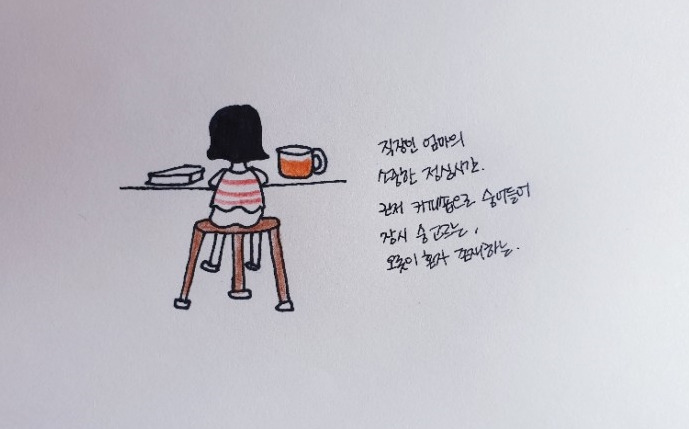 직장인 엄마의
소중한 점심시간.
근처 카페로 숨어들어
잠시 숨 고르는,
오롯이 혼자 존재하는.